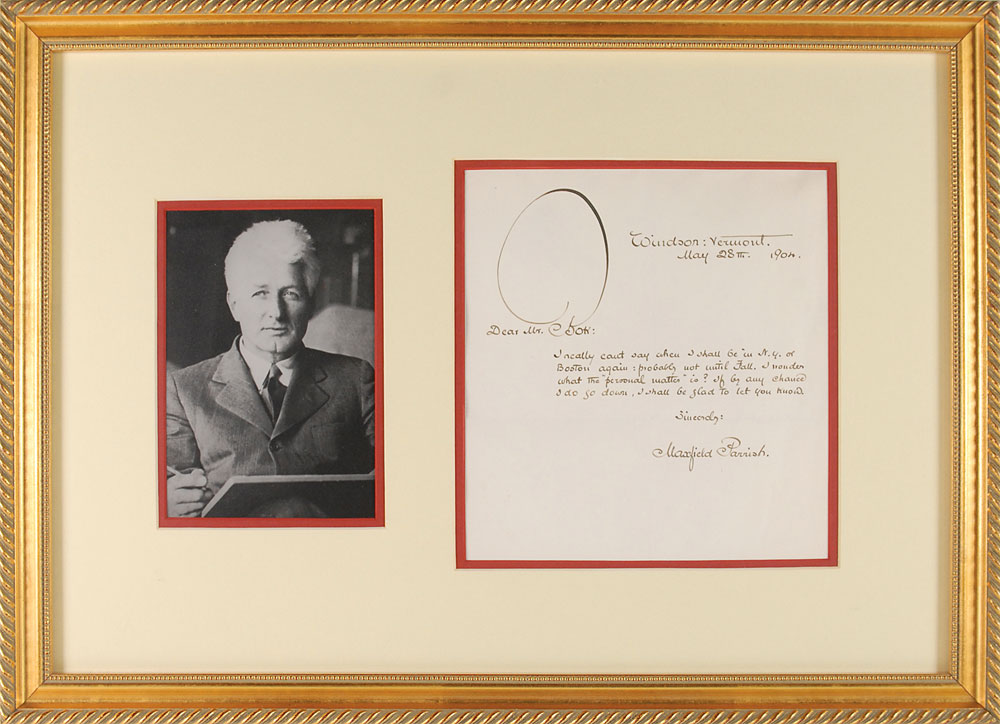 Windsor: Vermont.
May 28th. 1904.
Dear Mr.
I really can't say when I shall be in N.Y. or
Boston again: probably not until Fall. I wonder
what the "personal matter" is? If by any chance
I do go down, I shall be glad to let you know.
Sincerely:
Maxfield Parrish.